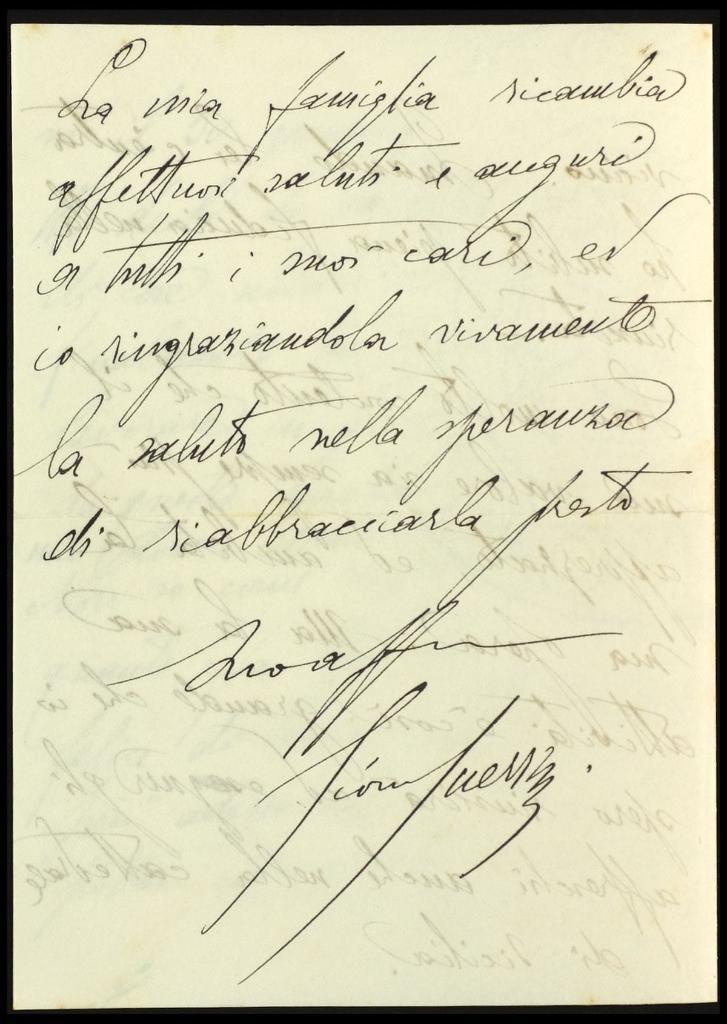 La mia famiglia ricambia
affettuosi saluti e auguri
a tutti i suoi cari, ed
io ringraziandola vivamente
la saluto nella speranza
di riabbracciarla presto
Suo aff